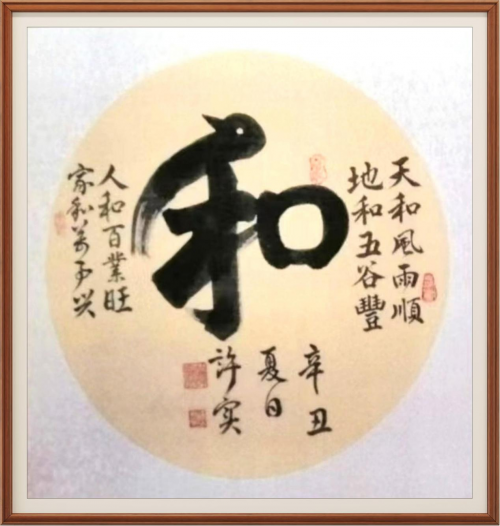 和
天和風雨順
地和五谷豐
人和百業旺
家和万事兴
辛丑
夏日
許实